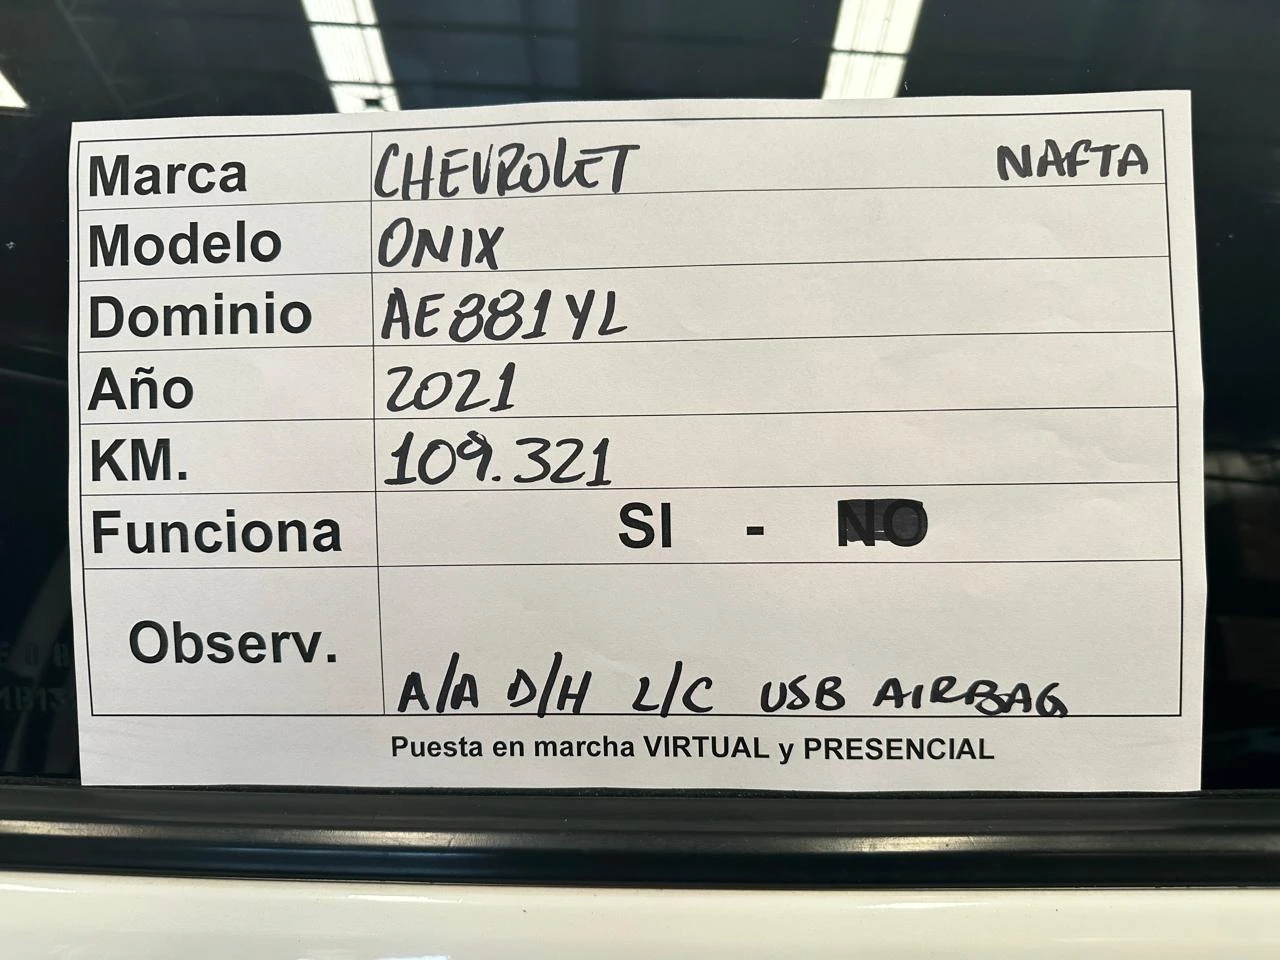 Marca CHEVROLET NAFTA
Modelo ONIX
Dominio AE881YL
Año 2021
KM. 109.321
Funciona SI - NO
Observ. A/A D/H L/C USB AIRBAG
Puesta en marcha VIRTUAL y PRESENCIAL